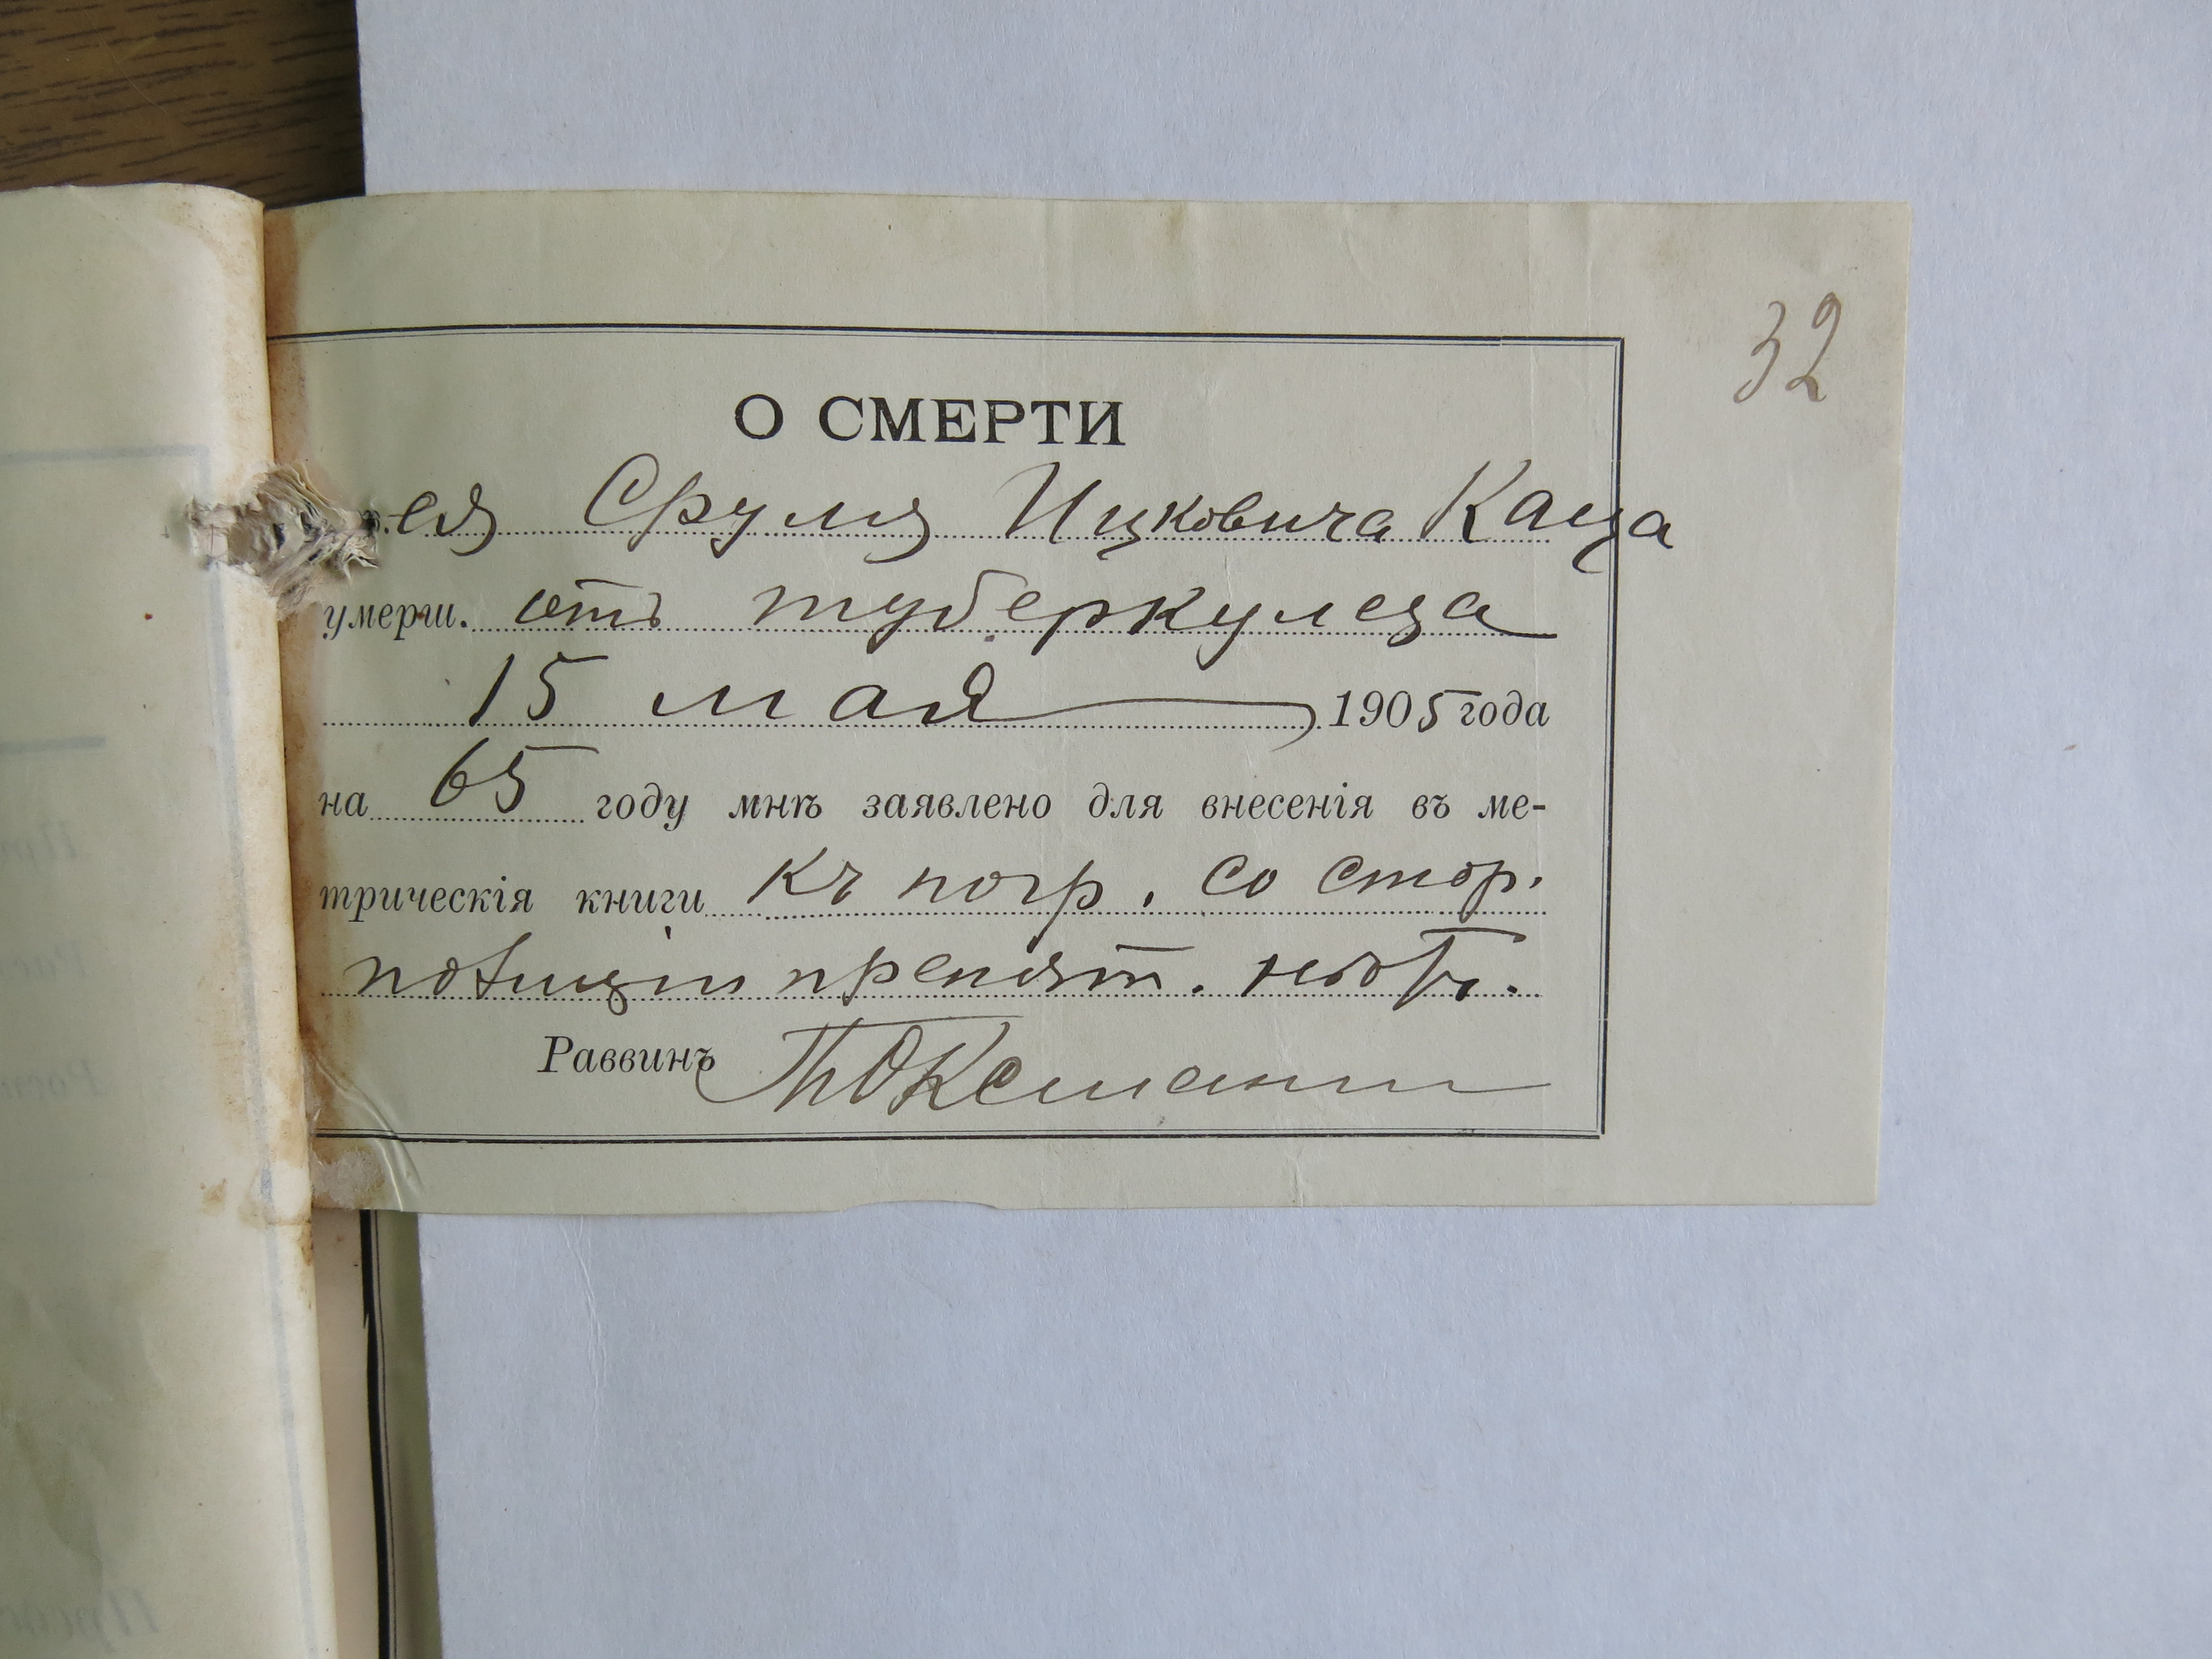 32
О СМЕРТИ
Сруля Ицковича Каца
умерш. отъ туберкулеза
15 мая 1905 года
на 65 году мнѣ заявлено для внесенія въ ме-
трическія книги Къ погр. со стор.
полиціи препят. нѣтъ.
Раввинъ